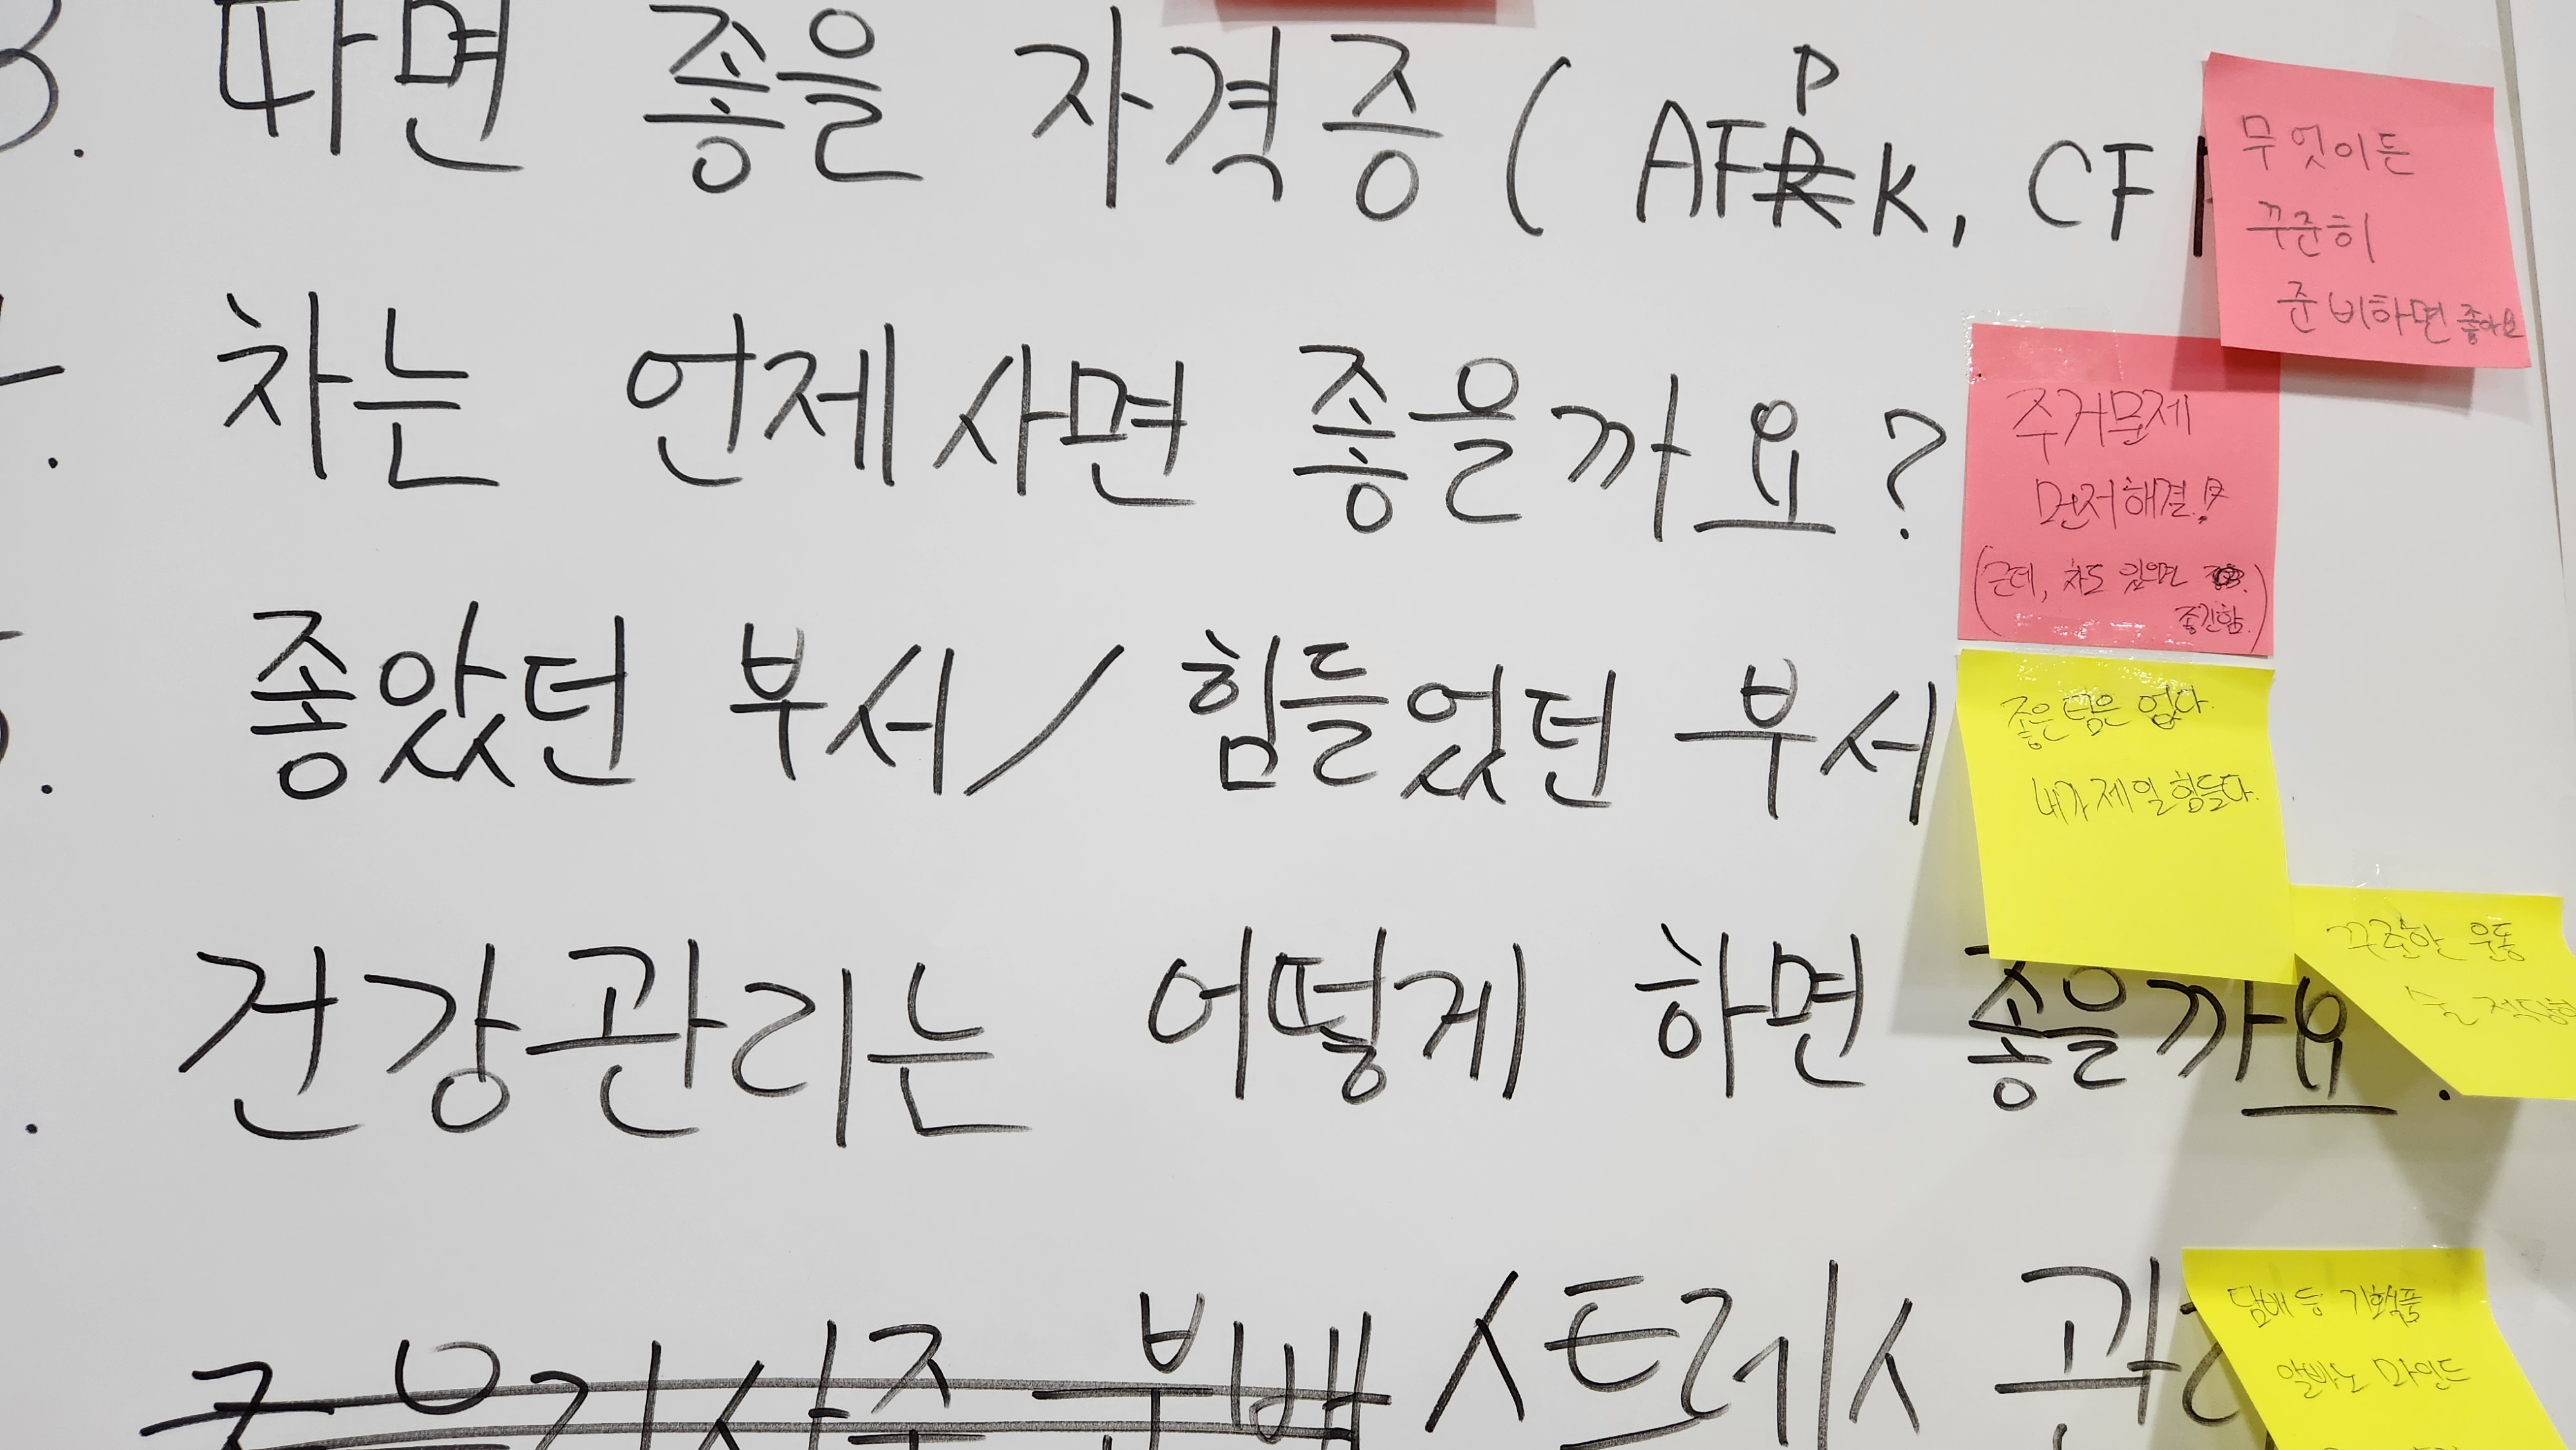 3. 따면 좋을 자격증 ( AFPK, CF
무엇이든
꾸준히
준비하면 좋아요
차는 언제 사면 좋을까요?
주거문제
먼저해결!
(근데, 차도 있으면
좋긴함.)
좋았던 부서 / 힘들었던 부서
좋은 팀은 없다.
내가 제일 힘들다.
건강관리는 어떻게 하면 좋을까요
꾸준한 운동
술
스트레스 관리
담배 등 기호식품
알빠노 마인드